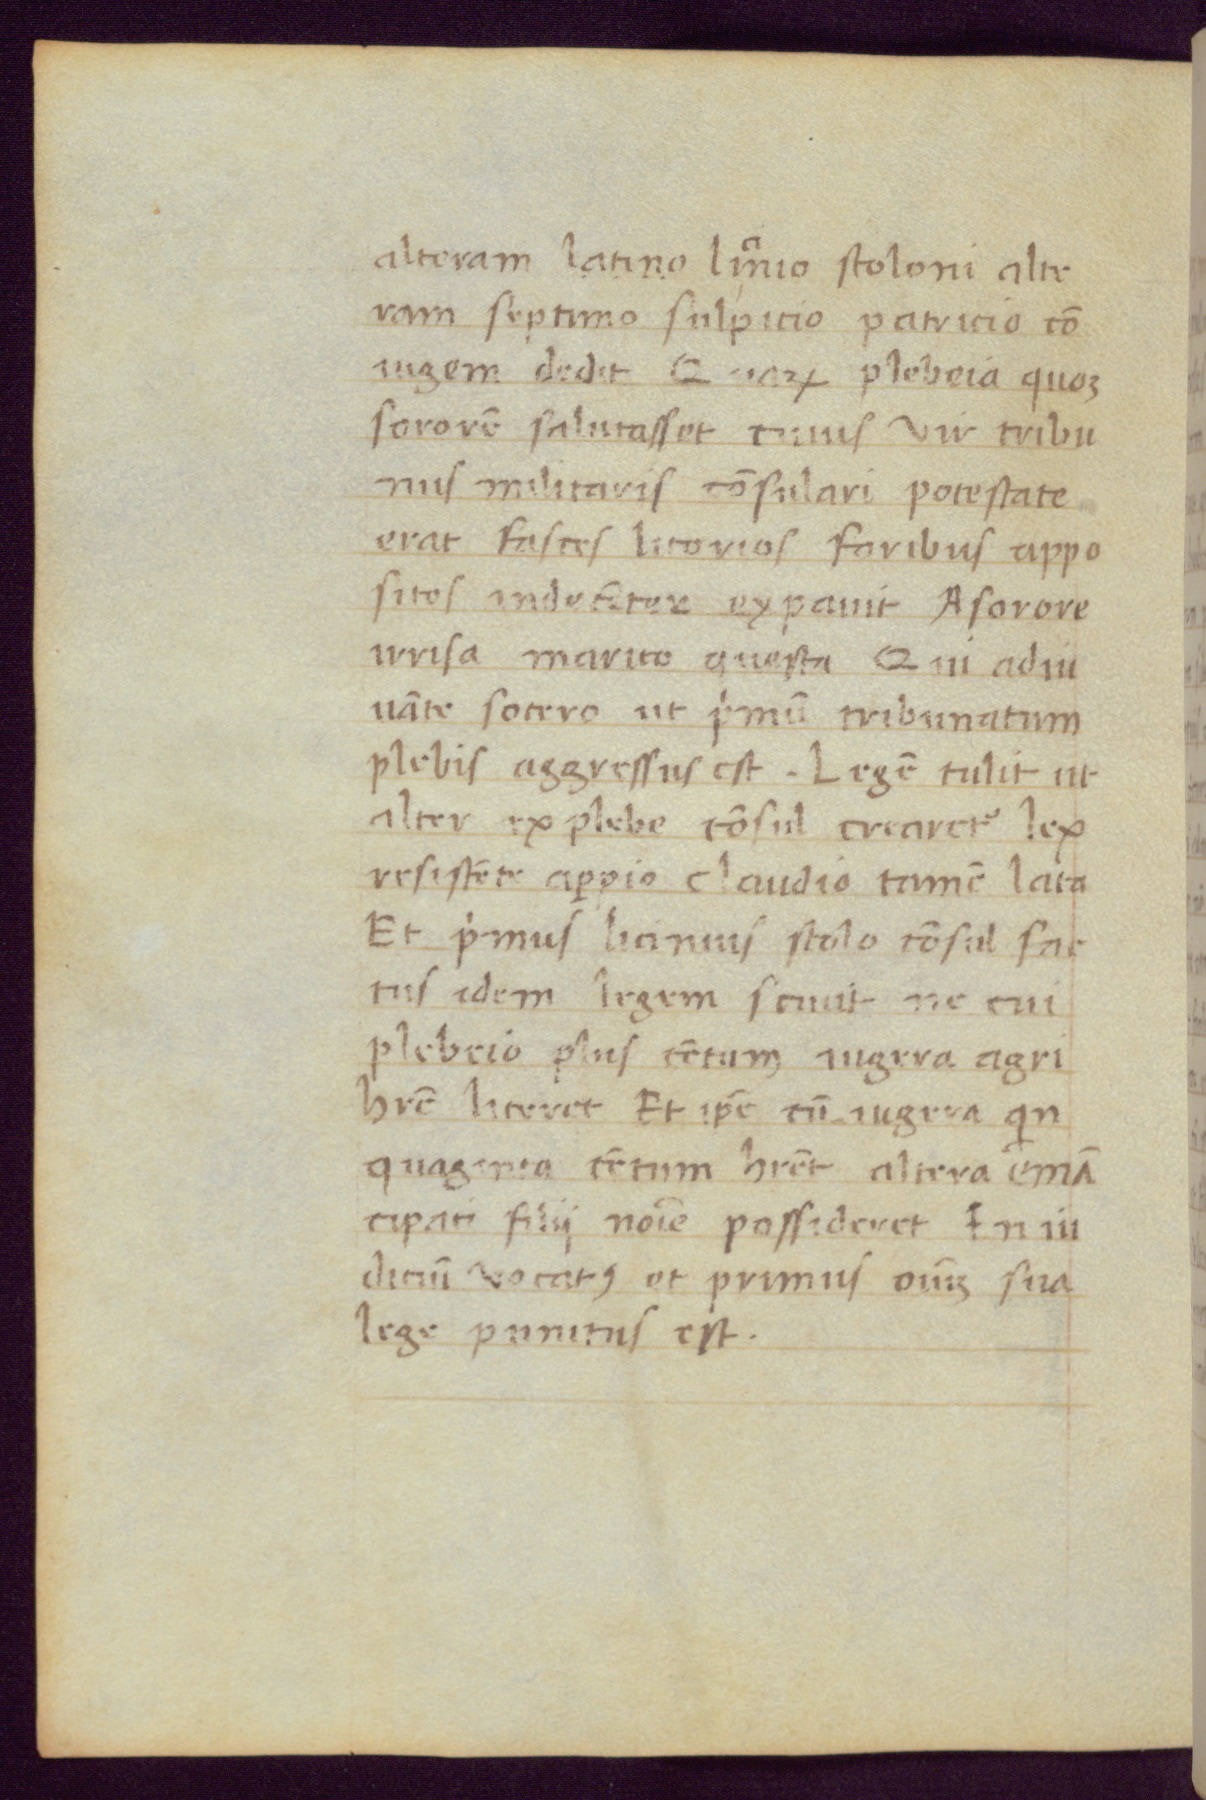 alteram latino lĩnio stoloni alte
ram septimo sulpicio patricio cõ
iugem dedit Quarꝝ plebeia quoꝫ
sororẽ salutasset cuius vir tribu
nus militaris cõsulari potestate
erat fasces litorios foribus appo
sitos indecẽter expauit A sorore
irrisa marito questa Qui adiu
uãte socero ut pͥmũ tribunatum
plebis aggressus est . Legẽ tulit ut
alter ex plebe cõsul crearet᷑ lex
resistẽte appio claudio tamẽ lata
Et pͥmus licinius stolo cõsul fac
tus idem legem sciuit ne cui
plebeio plus cẽtum iugera agri
hr̃e liceret Et ip̃e cũ iugera qͥn
quaginta cẽtum hr̃et altera emã
cipati filij noĩe possideret In iu
diciũ vocatꝰ et primus oĩuꝫ sua
lege punitus est .